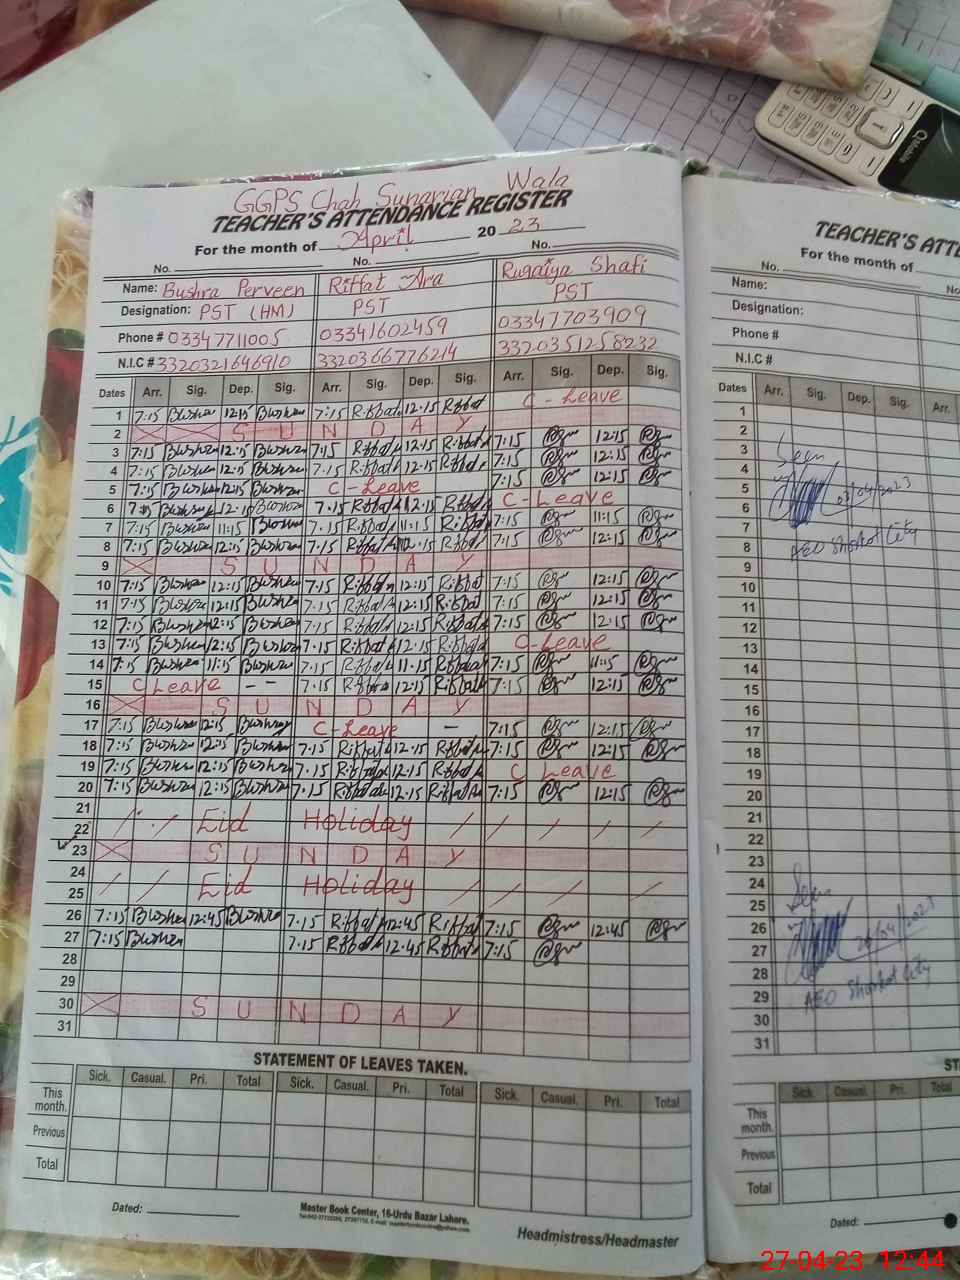 GGPS Chah Sunarian Wala
TEACHER'S ATTENDANCE REGISTER
For the month of April 2023
No. No. No.
Name: Bushra Perveen Riffat Ara Ruqaiya Shafi
Designation: PST (HM) PST PST
Phone # 03347711005 03341602459 03347703909
N.I.C # 3320321646910 3320366776214 3320351258232
Dates Arr. Sig. Dep. Sig. Arr. Sig. Dep. Sig. Arr. Sig. Dep. Sig.
1 7:15 Bushra 12:15 Bushra 7:15 Riffat 12:15 Riffat C-Leave
2 S U N D A Y
3 7:15 Bushra 12:15 Bushra 7:15 Riffat 12:15 Riffat 7:15 12:15
4 7:15 Bushra 12:15 Bushra 7:15 Riffat 12:15 Riffat 7:15 12:15
5 7:15 Bushra 12:15 Bushra C-Leave 7:15 12:15
6 7:15 Bushra 12:15 Bushra 7:15 Riffat 12:15 Riffat C-Leave
7 7:15 Bushra 11:15 Bushra 7:15 Riffat 11:15 Riffat 7:15 11:15
8 7:15 Bushra 12:15 Bushra 7:15 Riffat 12:15 Riffat 7:15 12:15
9 S U N D A Y
10 7:15 Bushra 12:15 Bushra 7:15 Riffat 12:15 Riffat 7:15 12:15
11 7:15 Bushra 12:15 Bushra 7:15 Riffat 12:15 Riffat 7:15 12:15
12 7:15 Bushra 12:15 Bushra 7:15 Riffat 12:15 Riffat 7:15 12:15
13 7:15 Bushra 12:15 Bushra 7:15 Riffat 12:15 Riffat C-Leave
14 7:15 Bushra 11:15 Bushra 7:15 Riffat 11:15 Riffat 7:15 11:15
15 C Leave -- 7:15 Riffat 12:15 Riffat 7:15 12:15
16 S U N D A Y
17 7:15 Bushra 12:15 Bushra C-Leave - 7:15 12:15
18 7:15 Bushra 12:15 Bushra 7:15 Riffat 12:15 Riffat 7:15 12:15
19 7:15 Bushra 12:15 Bushra 7:15 Riffat 12:15 Riffat C Leave
20 7:15 Bushra 12:15 Bushra 7:15 Riffat 12:15 Riffat 7:15 12:15
21
22 Eid Holiday
23 S U N D A Y
24
25 Eid Holiday
26 7:15 Bushra 12:45 Bushra 7:15 Riffat 12:45 Riffat 7:15 12:45
27 7:15 Bushra 7:15 Riffat 12:45 Riffat 7:15
28
29
30 S U N D A Y
31
STATEMENT OF LEAVES TAKEN.
Sick. Casual. Pri. Total Sick. Casual. Pri. Total Sick. Casual. Pri. Total
This month.
Previous
Total
Dated:
Master Book Center, 16-Urdu Bazar Lahore.
Headmistress/Headmaster
TEACHER'S ATTE
For the month of
No. No
Name:
Designation:
Phone #
N.I.C #
Dates Arr. Sig. Dep. Sig. Arr.
1
2
3
4 Seen
5
6
7
8 AEO Shorkot City
9
10
11
12
13
14
15
16
17
18
19
20
21
22
23
24
25 Seen
26
27 26/04/2023
28
29 AEO Shorkot City
30
31
ST
Sick. Casual. Pri. Total
This month.
Previous
Total
Dated:
QMobile
27-04-23 12:44